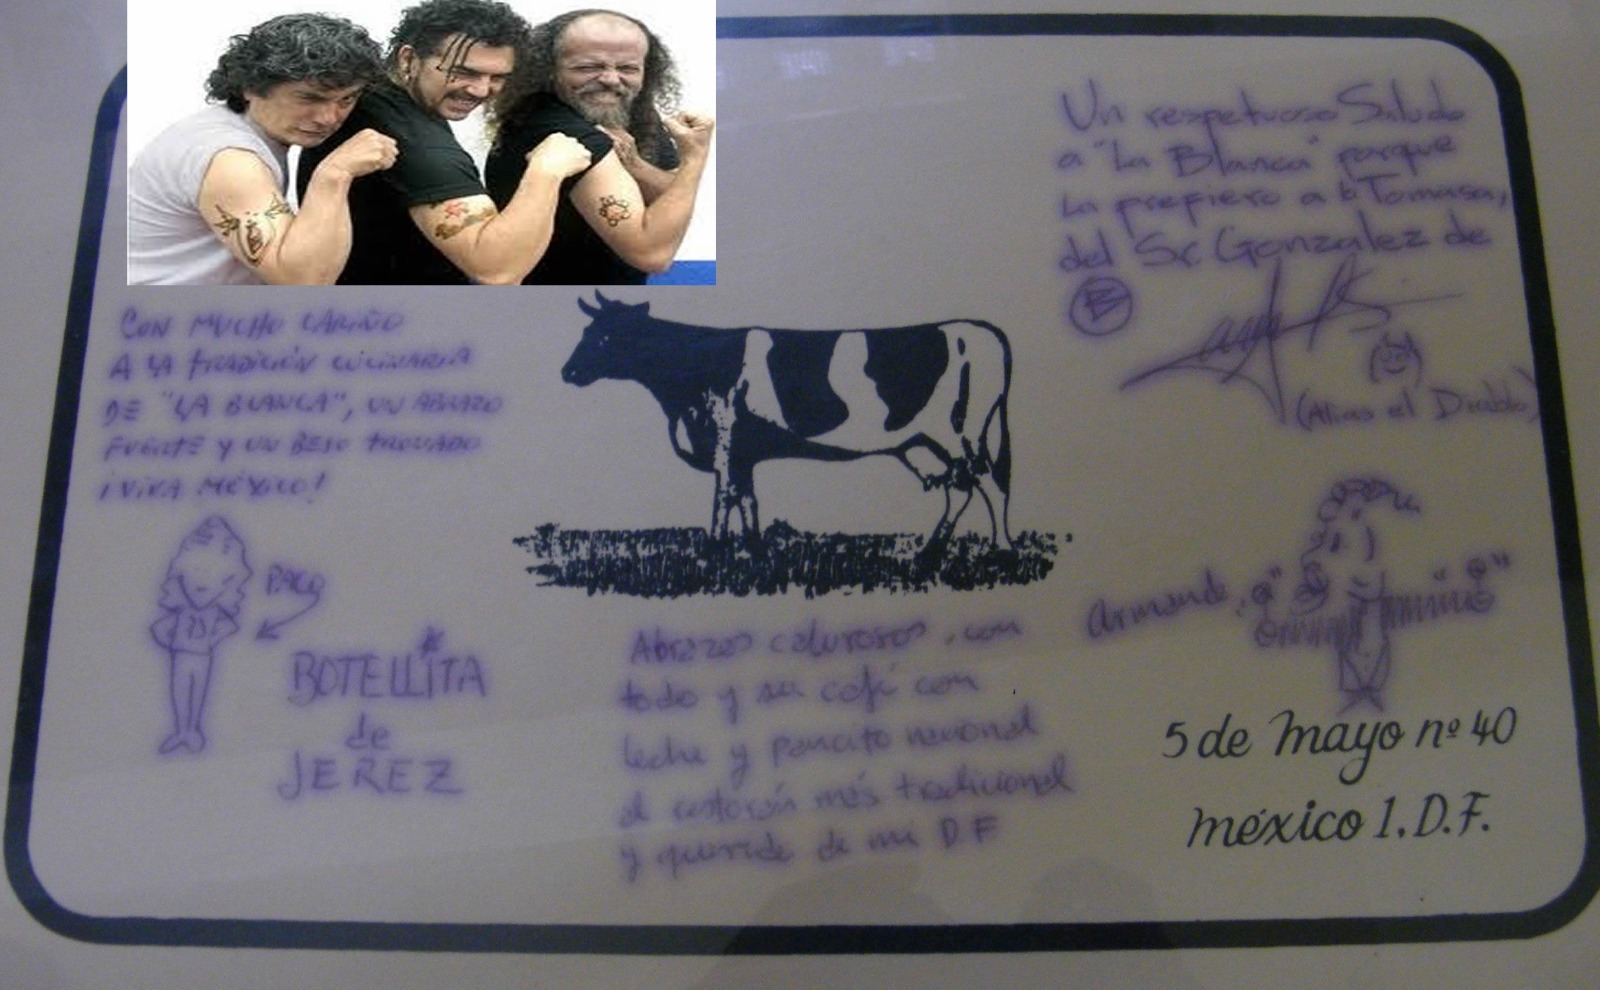 Un respetuoso Saludo
a "La Blanca" porque
La prefiero a la Tomasa,
del Sr Gonzalez de
B
(Alias el Diablo)
CON MUCHO CARIÑO
A LA TRADICIÓN CULINARIA
DE "LA BLANCA", UN ABRAZO
FUERTE Y UN BESO TRONADO
¡VIVA MÉXICO!
PACO
BOTELLITA
de
JEREZ
Abrazos calurosos, con
todo y su café con
leche y pancito
el restorán más tradicional
y querido de mi DF
Armando
5 de Mayo nº 40
México 1, D.F.